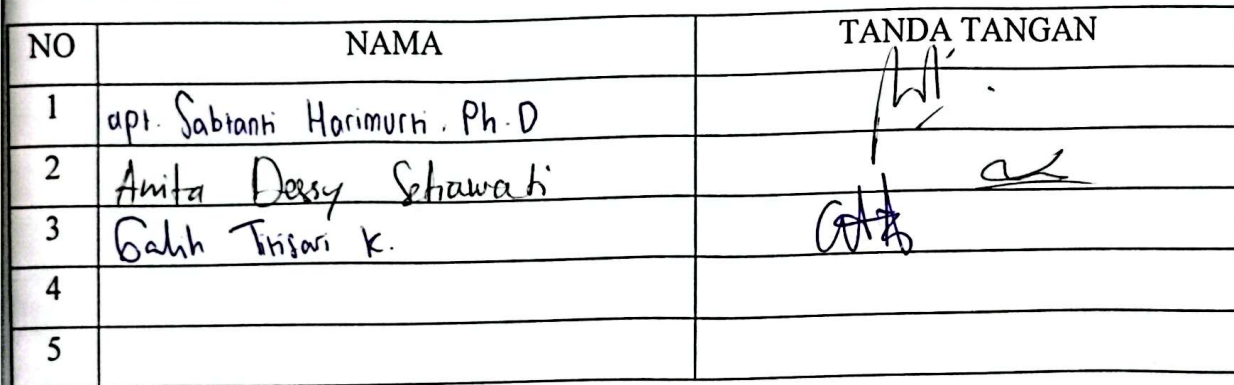 NO NAMA TANDA TANGAN
1 apt. Sabtanti Harimurti. Ph.D
2 Anita Dessy Setiawati
3 Galih Tirisari K.
4
5